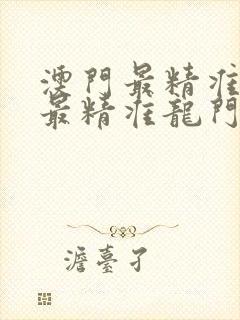 澳門最精准
最精准龍門
澹臺子